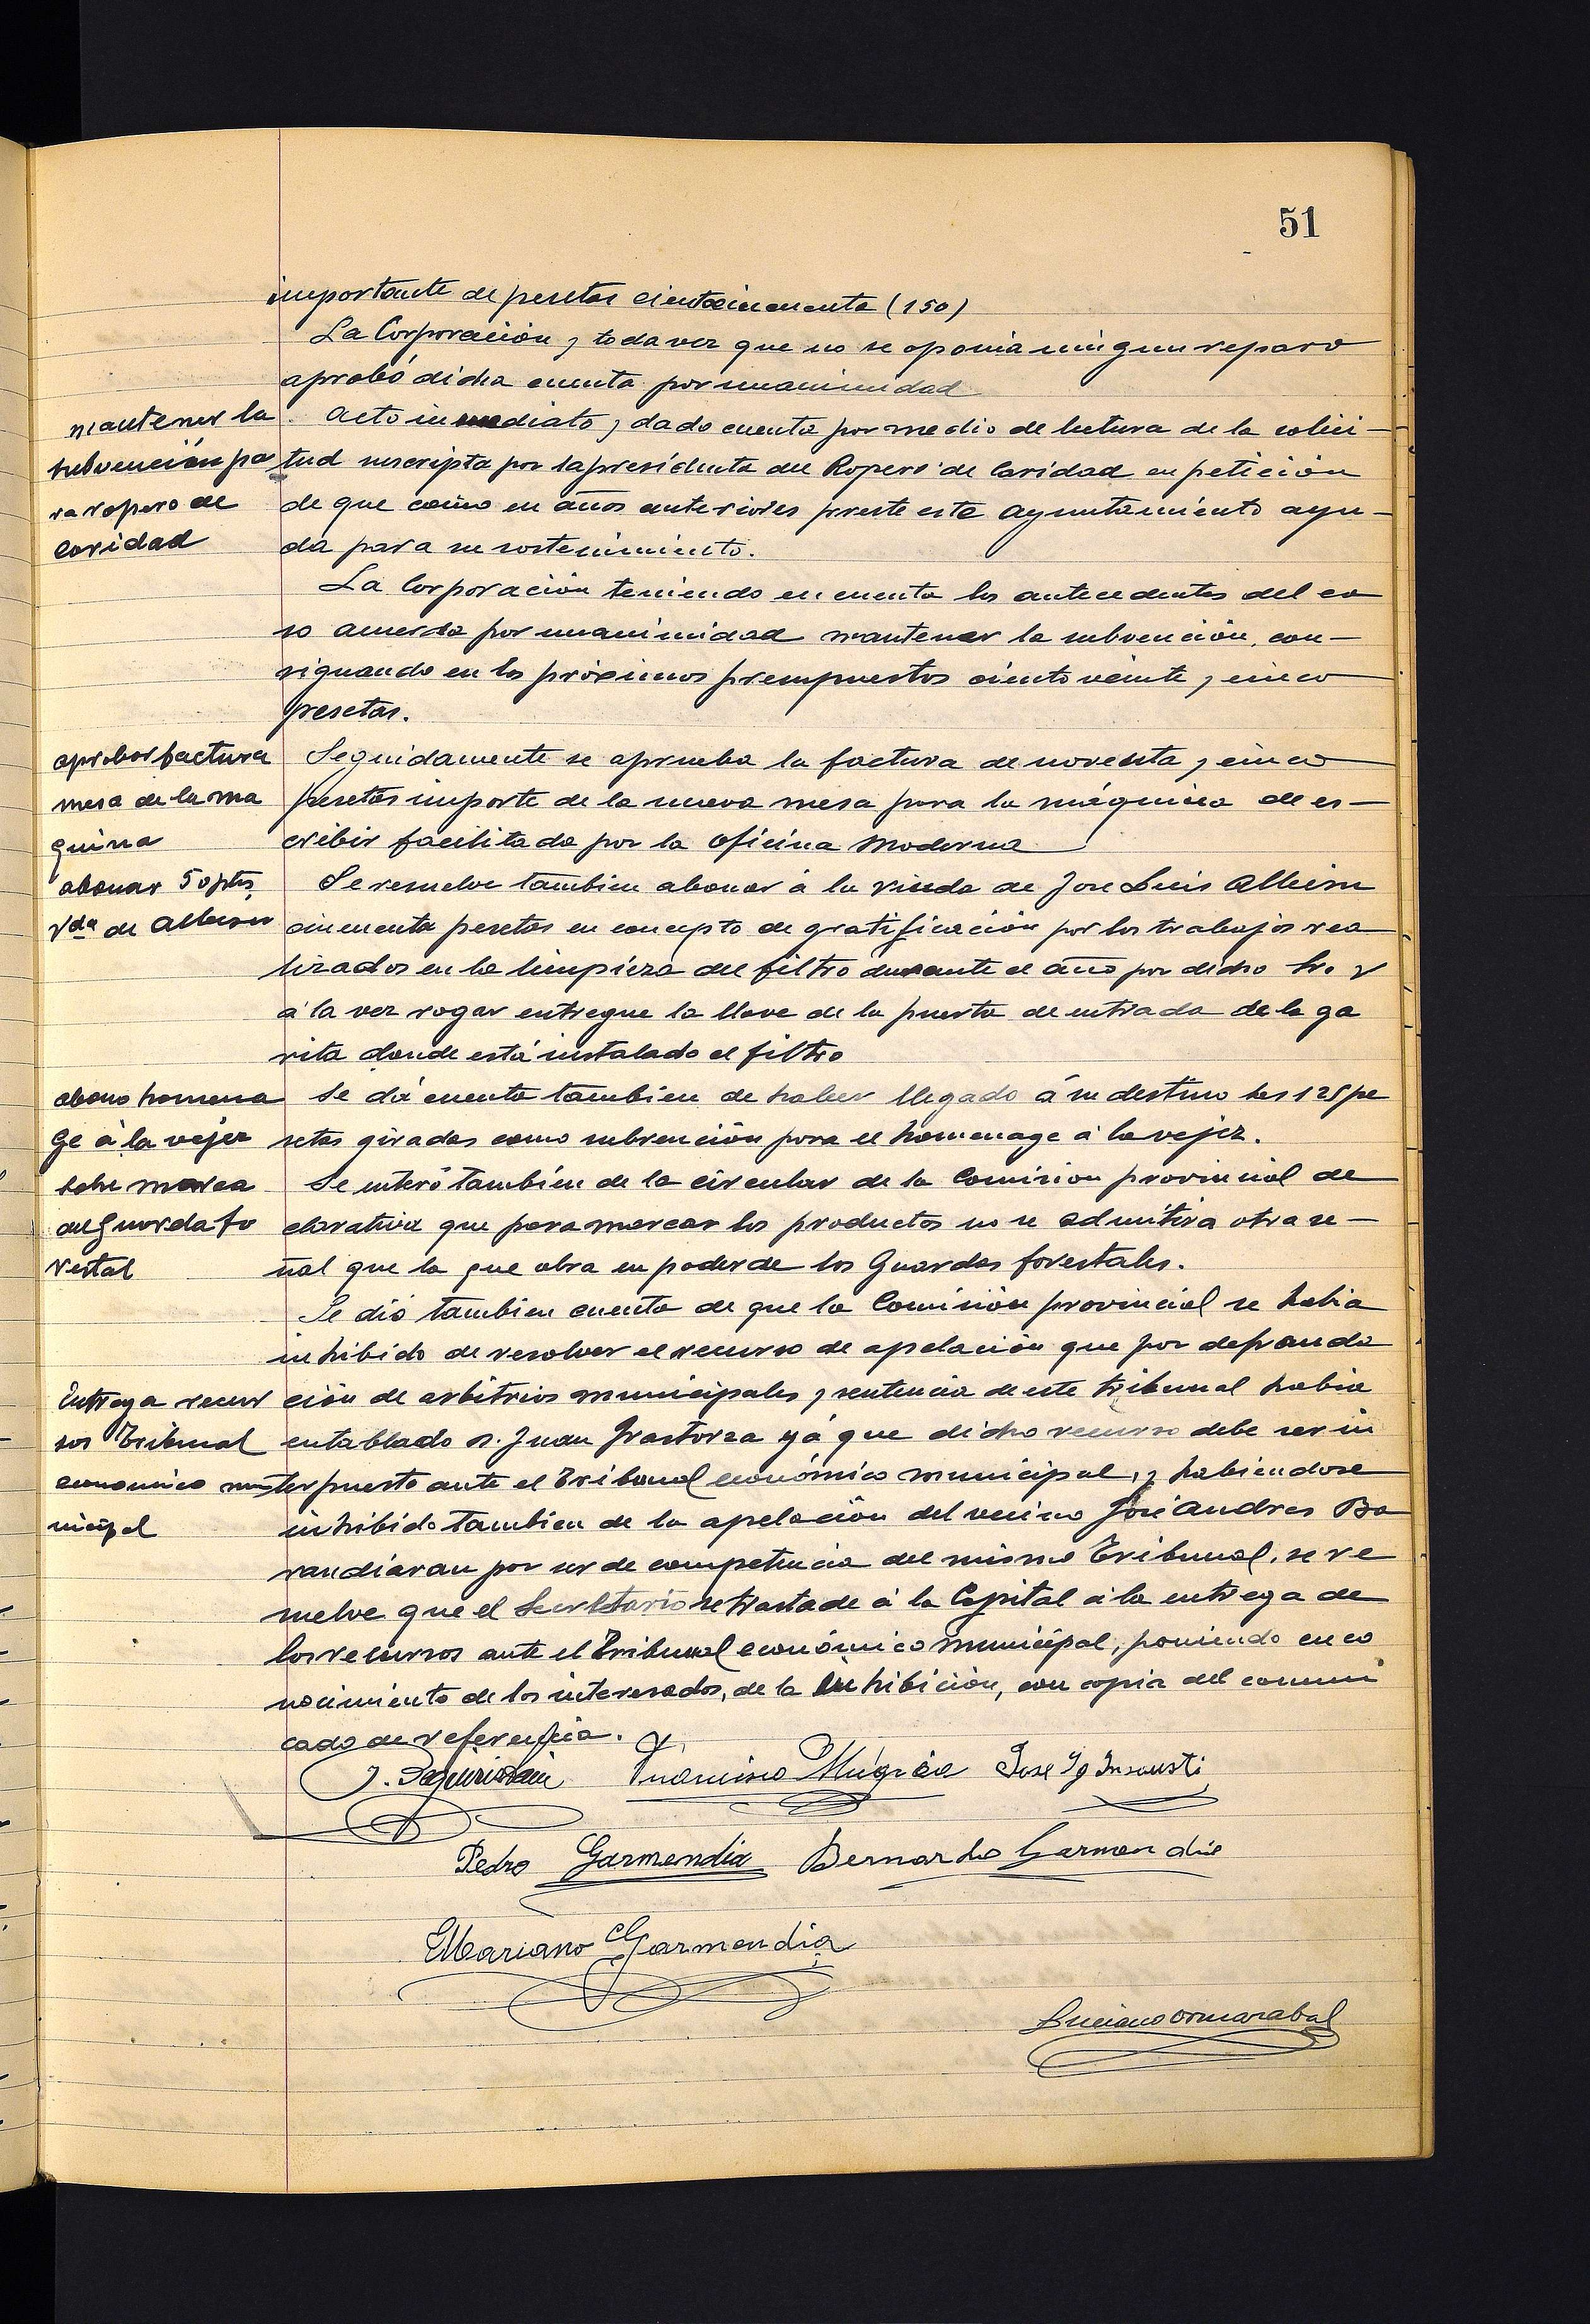 51
importante de pesetas cientocincuenta (150)
La Corporación y toda vez que no se oponia ningun reparo
aprobó dicha cuenta por unanimidad
mantener la
subvención pa
ra ropero de
caridad
Acto inmediato y dado cuenta por medio de lectura de la solici-
tud suscripta por la presidenta del Ropero de Caridad en petición
de que como en años anteriores preste este Ayuntamiento ayu-
da para su sostenimiento.
La Corporación teniendo en cuenta los antecedentes del ca
so acuerda por unanimidad mantener la subvención, con-
signando en los próximos presupuestos ciento veinte y cinco
pesetas.
aprobar factura
mesa de la ma
quina
Seguidamente se aprueba la factura de noventa y cinco
pesetas importe de la nueva mesa para la máquina de es-
cribir facilitada por la Oficina Moderna
abonar 50 ptas
Vda de Albisu
Se resuelve tambien abonar á la viuda de Jose Luis Albisu
cincuenta pesetas en concepto de gratificación por los trabajos rea
lizados en la limpieza del filtro durante el año por dicho Sr. y
á la vez rogar entregue la llave de la puerta de entrada de la ga
rita donde está instalado el filtro
abono homena
ge á la vejez
Se dá cuenta tambien de haber llegado á su destino las 125 pe
setas giradas como subvención para el homenage á la vejez.
sobre marca
del Guarda fo
restal
Se enteró también de la circular de la Comision provincial de
clarativa que para marcar los productos no se admitira otra se-
ñal que la que obra en poder de los Guardas forestales.
Se dió tambien cuenta de que la Comisión provincial se habia
inhibido de resolver el recurso de apelación que por defrauda
Entrega recur
sos Tribunal
economico mu
nicipal
ción de arbitrios municipales y sentencia de este tribunal habia
entablado D. Juan Irastorza yá que dicho recurso debe ser in
terpuesto ante el Tribunal económico municipal, y habiendose
inhibido tambien de la apelación del vecino José Andres Ba
randiaran por ser de competencia del mismo Tribunal, se re
suelve que el Secretario se traslade á la Capital á la entrega de
los recursos ante el Tribunal económico municipal, poniendo en co
nocimiento de los interesados, de la inhibición, con copia del comuni
cado de referencia.
Francisco Múgica Jose Ig Insausti
Pedro Garmendia Bernardo Garmendia
Mariano Garmendia
Luciano Ormazabal